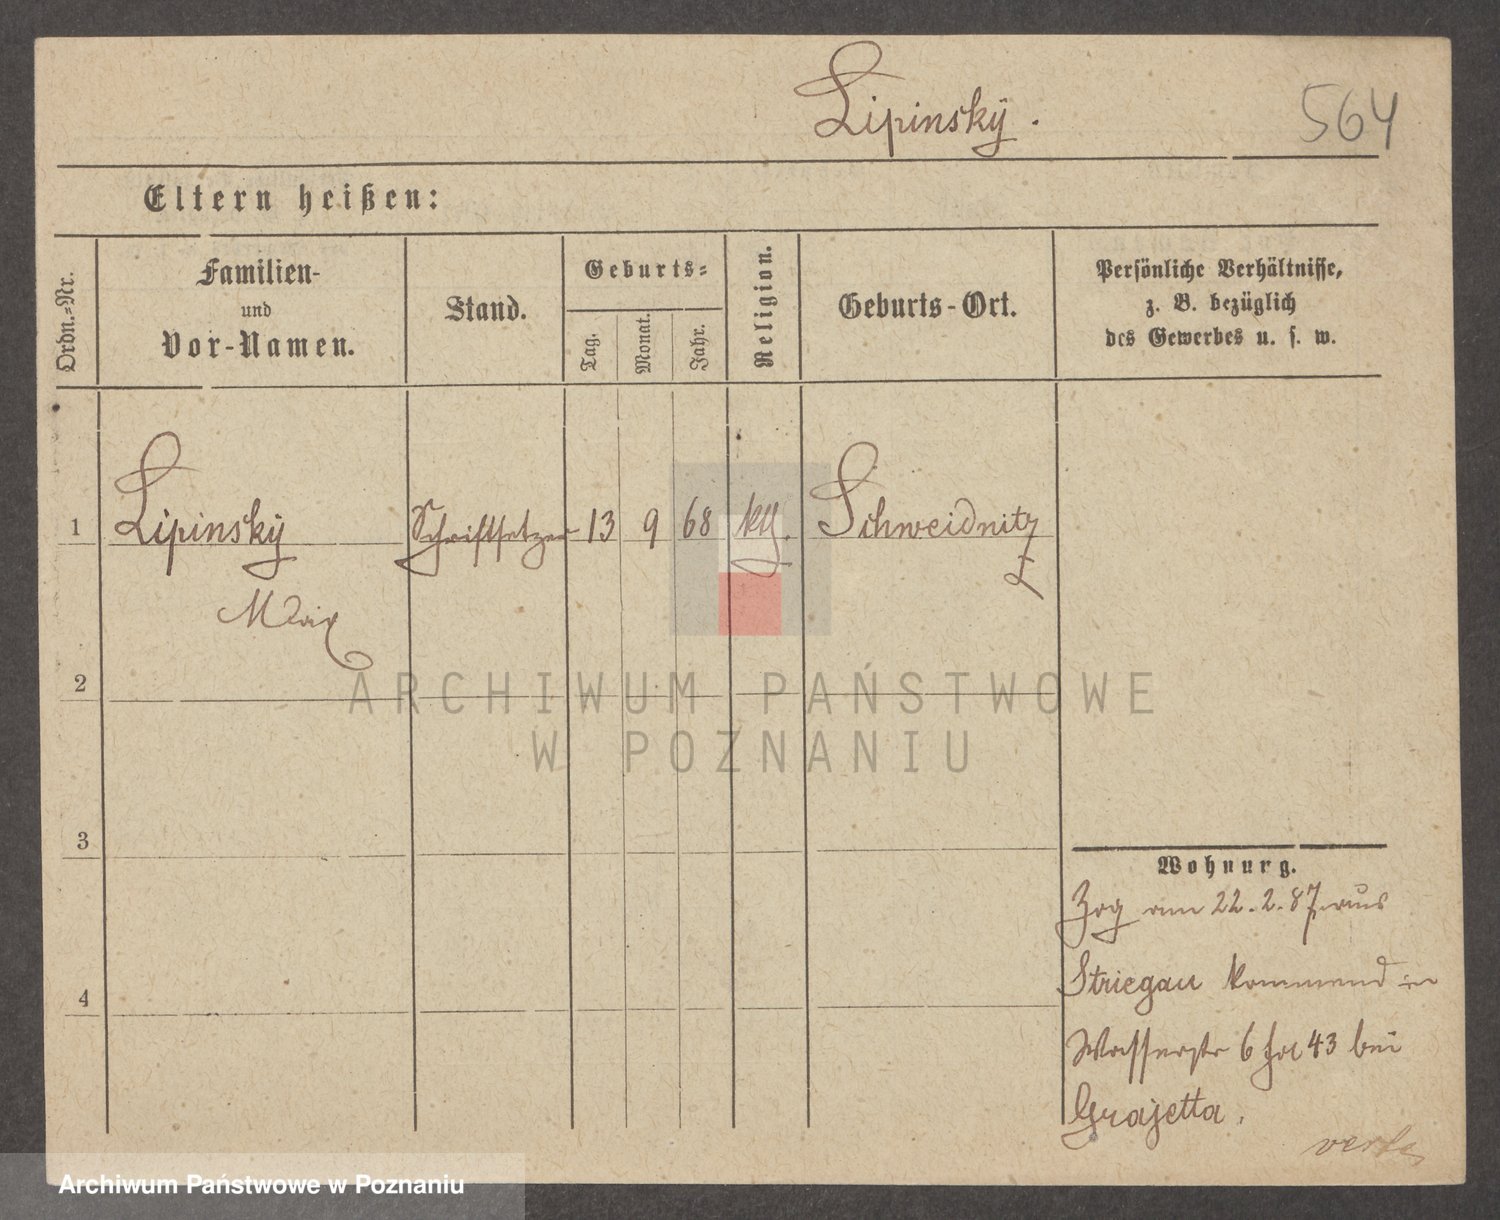 Lipinsky.
564
Eltern heißen:
Ordn.-Nr.
Familien-
und
Vor-Namen.
Stand.
Geburts-
Tag.
Monat.
Jahr.
Religion.
Geburts-Ort.
Persönliche Verhältnisse,
z. B. bezüglich
des Gewerbes u. s. w.
1 Lipinsky Schriftsetzer 13 9 68 kth. Schweidnitz
Max
2
3
4
ARCHIWUM PAŃSTWOWE
W POZNANIU
Wohnurg.
Zog am 22.2.87 aus
Striegau kommend in
Wasserstr 6 43 bei
Grajetta.
verte
Archiwum Państwowe w Poznaniu